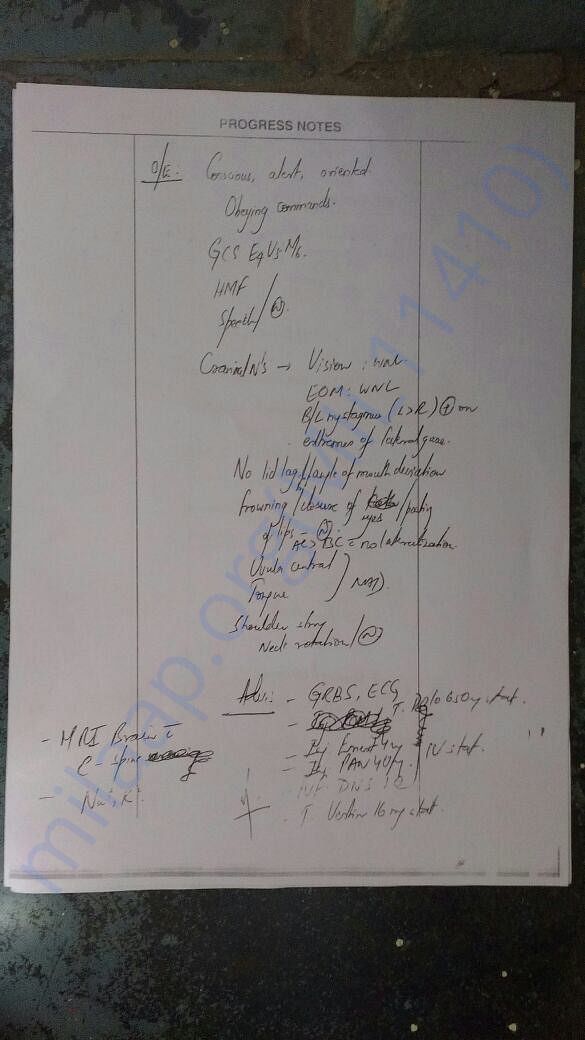 PROGRESS NOTES
O/E: Conscious, alert, oriented.
Obeying commands.
GCS E4 V5 M6.
HMF
Speech / (N).
Cranial N's → Vision : WNL
EOM : WNL
B/L nystagmus (L>R) (+) on
extremes of lateral gaze.
No lid lag / angle of mouth deviation
frowning / closure of eyes / pouting
of lips - (N).
AC > BC no lateralization
Uvula central
Tongue } NAD.
Shoulder shrug
Neck rotation / (N)
Adv: - GRBS, ECG
- T. Dolo 650mg stat.
- Inj Emeset 4mg
- Inj. PAN 40mg / IV stat.
IVF DNS
- T. Vertin 16mg stat.
- MRI Brain c̄
C-spine
- Na+, K+
milaap.org
11410)